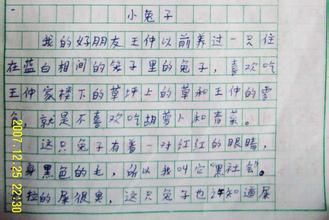 小兔子
我的好朋友王仲以前养过一只住
在蓝白相间的笼子里的兔子，喜欢吃
王仲家楼下的草坪上的草和王仲的零
食，就是不喜欢吃胡萝卜和青菜。
这只兔子有着一对红红的眼睛，
身黑色的毛，所以我叫它“黑社会”。
拉的屎很臭，这只兔子也知道屎
2007.12.25 22:30